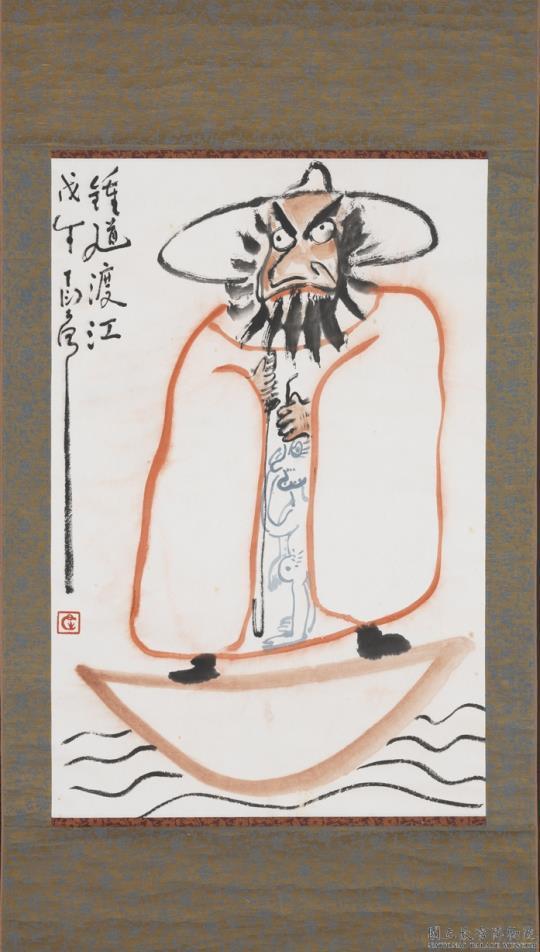 鍾馗渡江
戊午丁衍庸
國立故宮博物院
NATIONAL PALACE MUSEUM